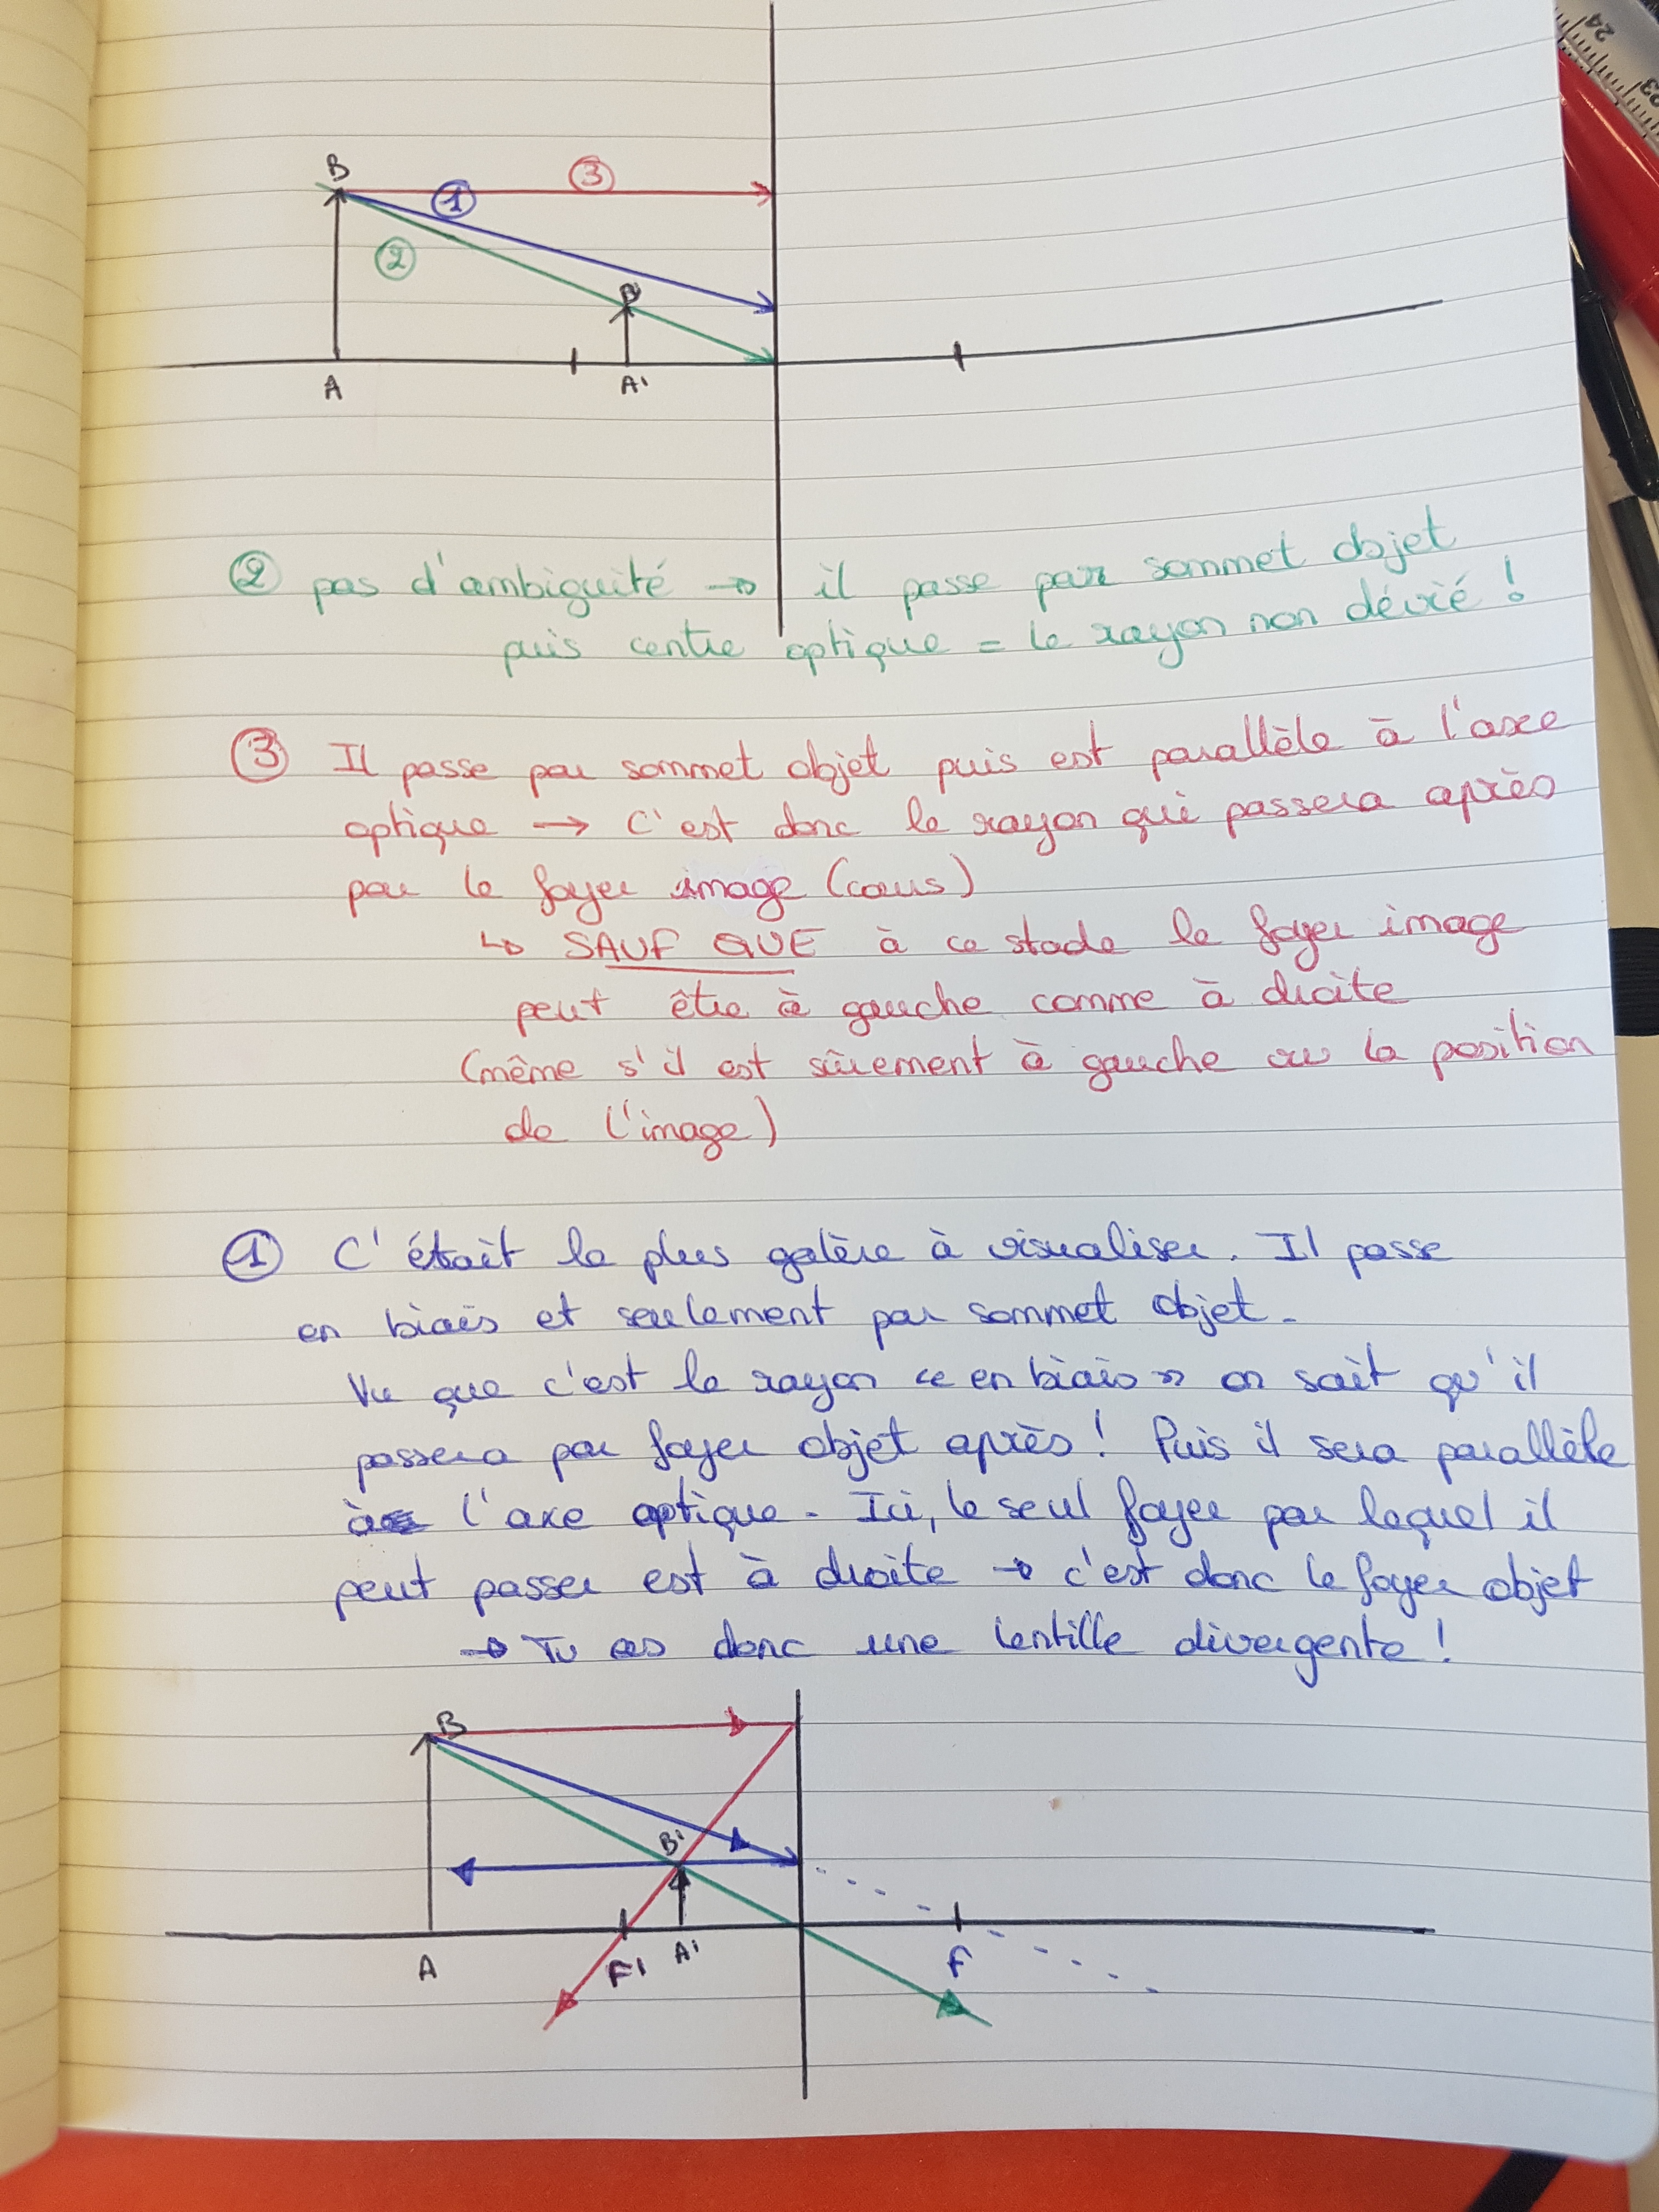 24
23
B
③
①
②
B'
A
A'
② pas d'ambiguité → il passe par sommet objet
puis centre optique = le rayon non dévié !
③ Il passe par sommet objet puis est parallèle à l'axe
optique → C'est donc le rayon qui passera après
par le foyer image (cours)
↳ SAUF QUE à ce stade le foyer image
peut être à gauche comme à droite
(même s'il est sûrement à gauche vu la position
de l'image)
① C'était le plus galère à visualiser. Il passe
en biais et seulement par sommet objet.
Vu que c'est le rayon « en biais » on sait qu'il
passera par foyer objet après ! Puis il sera parallèle
à l'axe optique. Ici, le seul foyer par lequel il
peut passer est à droite → c'est donc le foyer objet
→ Tu as donc une lentille divergente !
B
B'
A
F'
A'
F